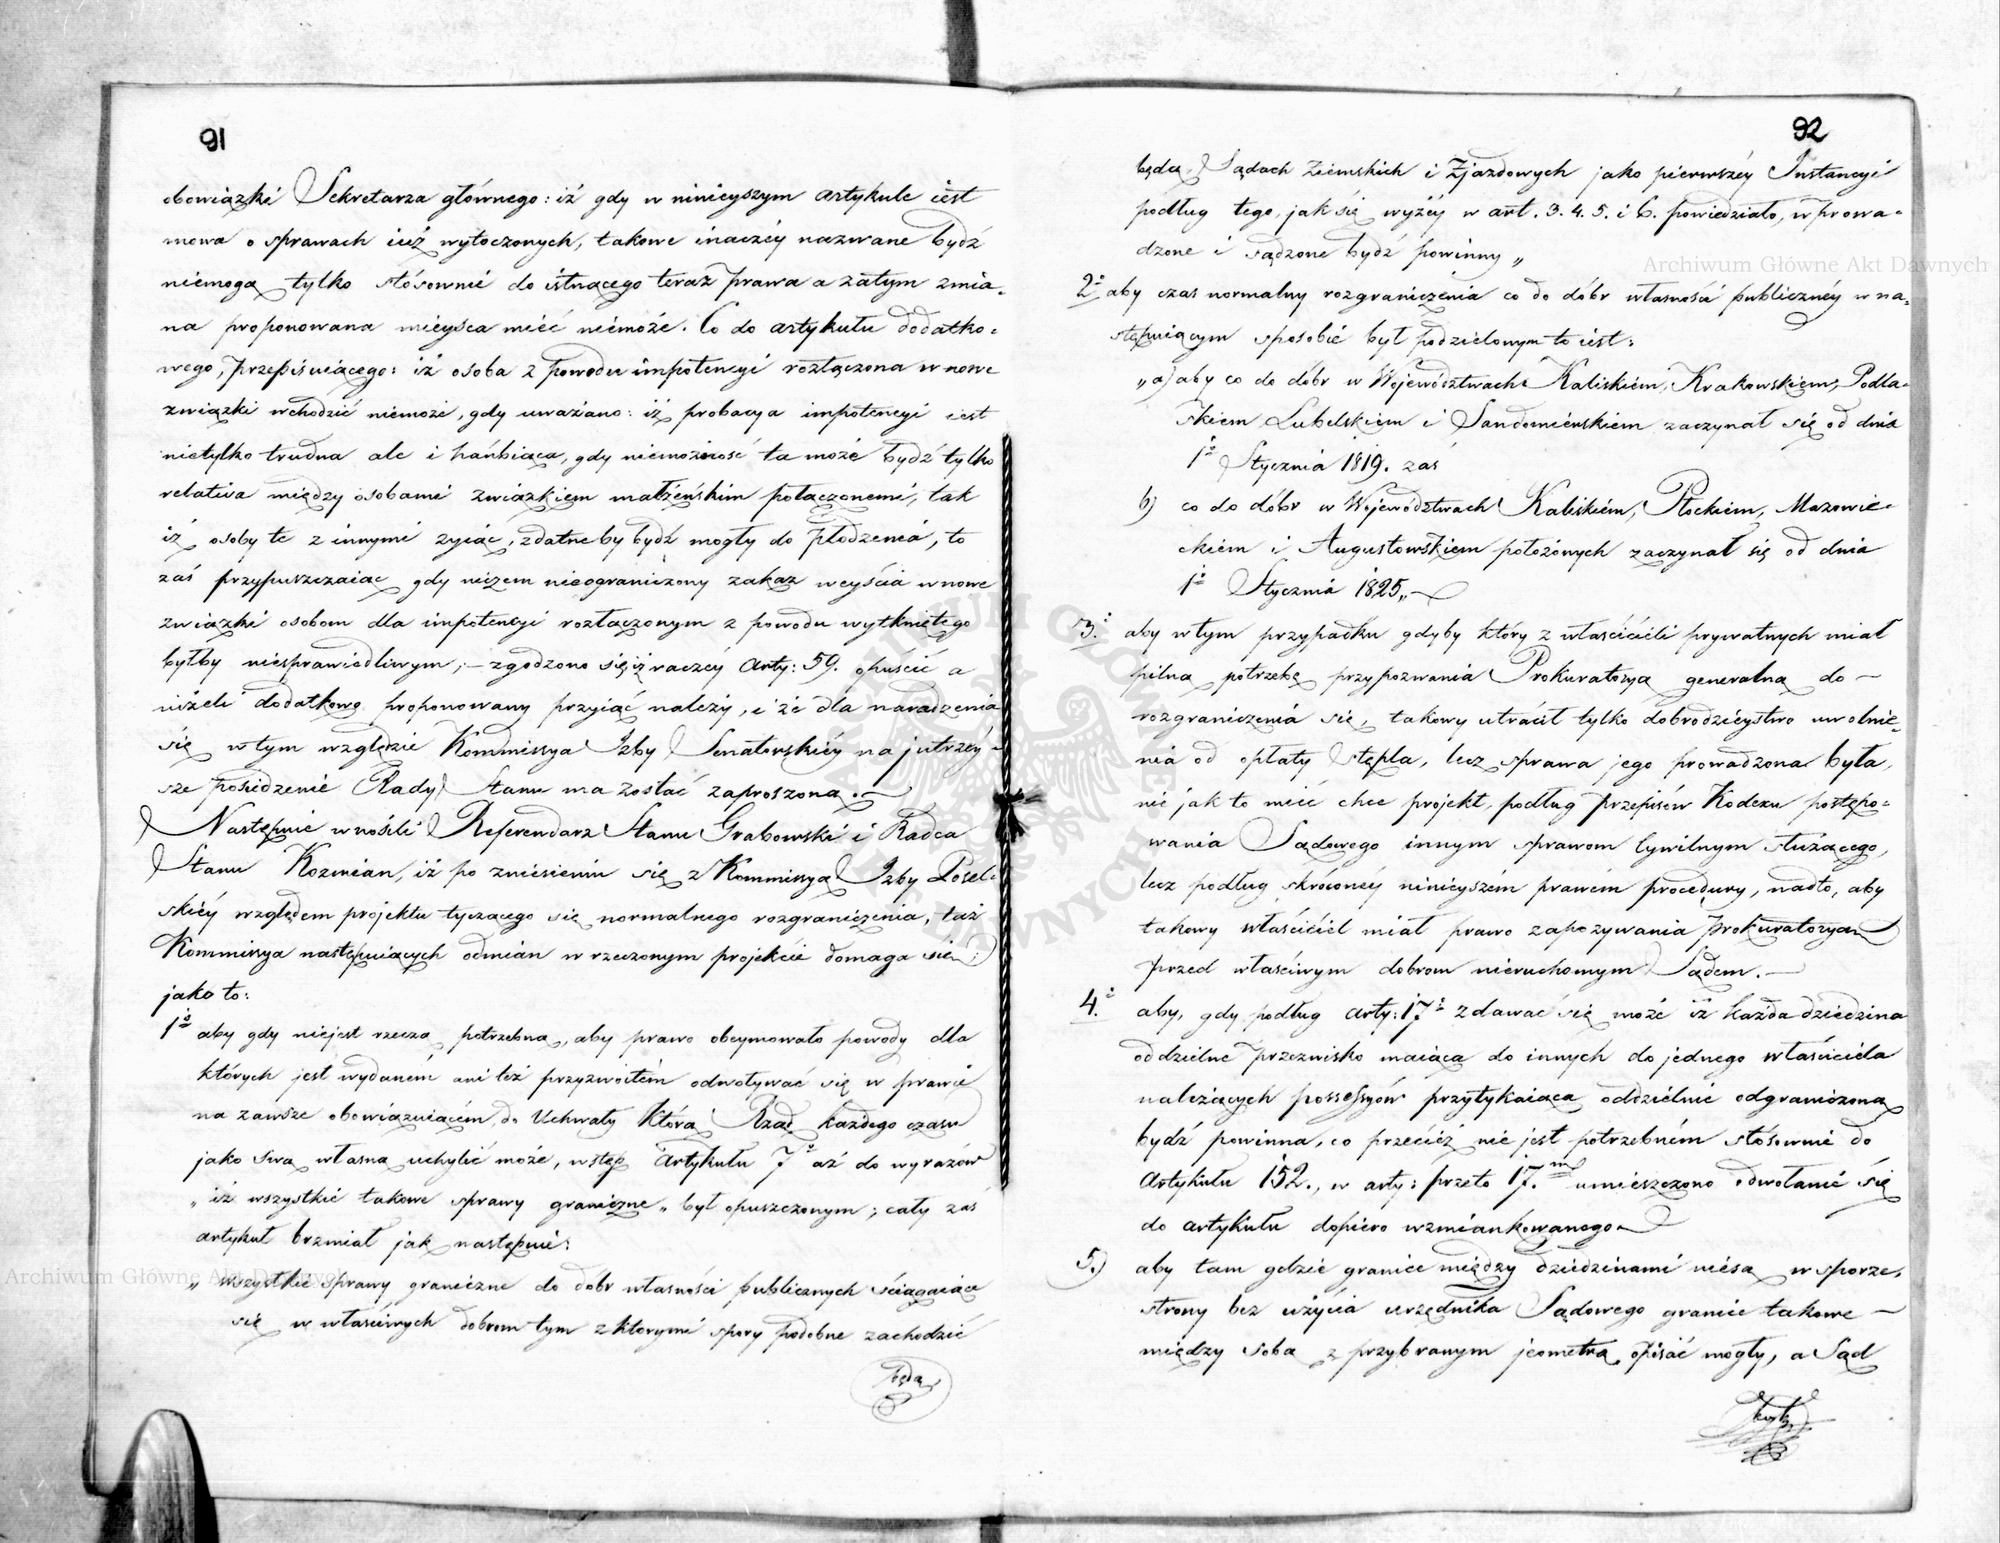 91
obowiązki Sekretarza głównego: iż gdy w ninieyszym artykule iest
mowa o sprawach iuż wytoczonych, takowe inaczéy nazwane bydź
niemogą tylko stósownie do istnącego teraz prawa a zatym zmia-
na proponowana mieysca mieć niemoże. Co do artykułu dodatko-
wego, przepisuiącego: iż osoba z powodu impotencyi rozłączona w nowe
związki wchodzić niemoże, gdy uważano: iż probacya impotencyi iest
nietylko trudna ale i hańbiąca, gdy niemożność ta może bydź tylko
relativa między osobami związkiem małżeńskim połączonemi, tak
iż osoby te z innymi żyiąc, zdatneby bydź mogły do płodzenia, to
zaś przypuszczaiąc gdy niżem nieograniczony zakaz weyścia w nowe
związki osobom dla impotencyi rozłączonym z powodu wytkniętego
byłby niesprawiedliwym; – zgodzono się iż raczéy arty: 59. opuścić a
niżeli dodatkowy proponowany przyiąć należy, i że dla naradzenia
się w tym względzie Kommissya Izby Senatorskiéy na jutrzéy-
sze posiedzenie Rady Stanu ma zostać zaproszoną. –
Następnie wnośili Referendarz Stanu Grabowski i Radca
Stanu Kozmian, iż po zniesieniu się z Kommissyą Izby Posel-
skiéy względem projektu tyczącego się normalnego rozgraniczenia, taż
Kommissya następuiących odmian w rzeczonym projekcie domaga się:
jako to:
1° aby gdy niejest rzeczą potrzebną, aby prawo obeymowało powody dla
których jest wydanem ani też przyzwoitém odwoływać się w prawie
na zawsze obowiązuiącém, do Uchwały którą Rząd każdego czasu
jako swą własną uchylić może, wstęp artykułu 7° aż do wyrazów
„iż wszystkie takowe sprawy graniczne„ był opuszczonym; cały zaś
artykuł brzmiał jak następuie:
„ wszystkie sprawy graniczne do dóbr własności publicznych ściągaiące
się w właściwych dobrom tym z któremi spory podobne zachodzić
będą
92
będą Sądach Ziemskich i Zjazdowych jako pierwszéy Instancyi
podług tego, jak się wyżéy w art. 3. 4. 5. i 6. powiedziało, wprowa-
dzone i sądzone bydź powinny„
2° aby czas normalny rozgraniczenia co do dóbr własności publicznéy w na-
stępuiącym sposobie był podzielonym to iest:
„a) aby co do dóbr w Województwach Kaliskiem, Krakowskiem, Podla-
skiem Lubelskiem i Sandomierskiem zaczynał się od dnia
1° Stycznia 1819. zaś
b) co do dóbr w Województwach Kaliskiém, Płockiem, Mazowie-
ckiém i Augustowskiem położonych zaczynał się od dnia
1° Stycznia 1825„ –
3.° aby w tym przypadku gdyby który z właścicieli prywatnych miał
pilną potrzebę przypozwania Prokuratoryą generalną do –
rozgraniczenia się, takowy utracił tylko dobrodzieystwo uwolnie-
nia od opłaty stępla, lecz sprawa jego prowadzona była,
nie jak to mieć chce projekt, podług przepisów Kodexu postępo-
wania Sądowego innym sprawom Cywilnym służącego,
lecz podług skróconéy ninieyszém prawém procedury, nadto, aby
takowy właściciel miał prawo zapozywania Prokuratoryą
przed właściwym dobrom nieruchomym Sądem. –
4.° aby, gdy podług arty: 17° zdawać się może iż każda dziedzina
oddzielne przezwisko maiąca do innych do jednego właściciela
należących possessyów przytykaiąca oddzielnie odgraniczoną
bydź powinna, co przecież nie jest potrzebném stósownie do
artykułu 152., w arty: przeto 17.m umieszczono odwołanie się
do artykułu dopiero wzmiankowanego –
5.) aby tam gdzie granice między dziedzinami niesą w sporze,
strony bez użycia urzędnika Sądowego granice takowe –
między sobą z przybranym jeometrą opisać mogły, a Sąd
Archiwum Główne Akt Dawnych
Archiwum Główne Akt Dawnych